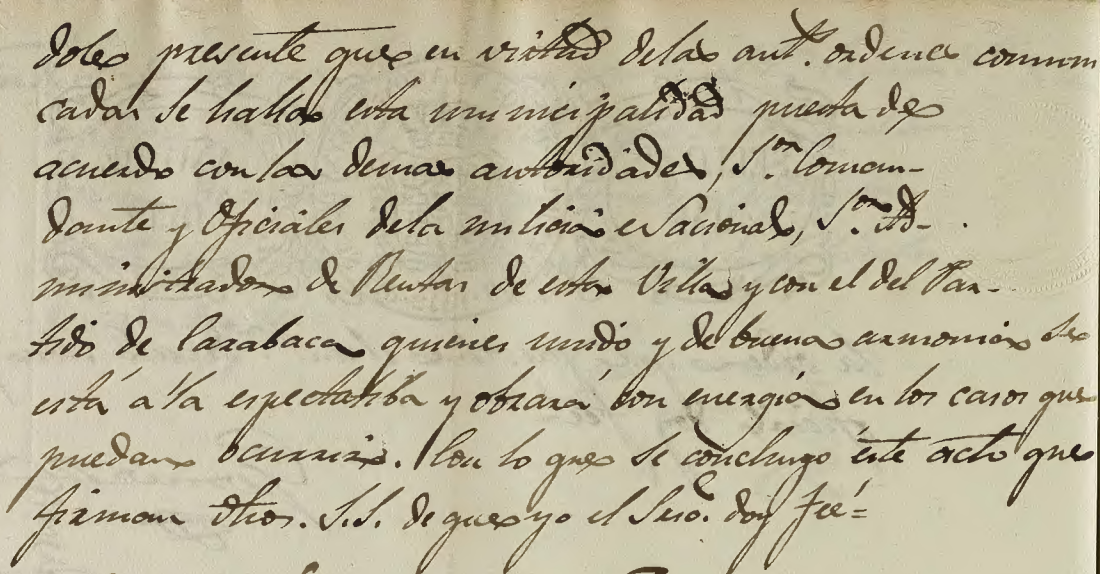 doles presente que en virtud delas ant.s ordenes comuni
cadas se halla esta municipalidad puesta de
acuerdo con las demas autoridades, S.or Coman-
dante y Oficiales dela milicia Nacional, S.or Ad-
ministrador de Rentas de esta Villa y con el del Par-
tido de Carabaca quienes unido y de buena armonia se
está á la espectatiba y obrará con energia en los casos que
puedan ocurrir. Con lo que se concluyó éste acto que
firman dhos. S.S. de que yo el Srio. doy fée=